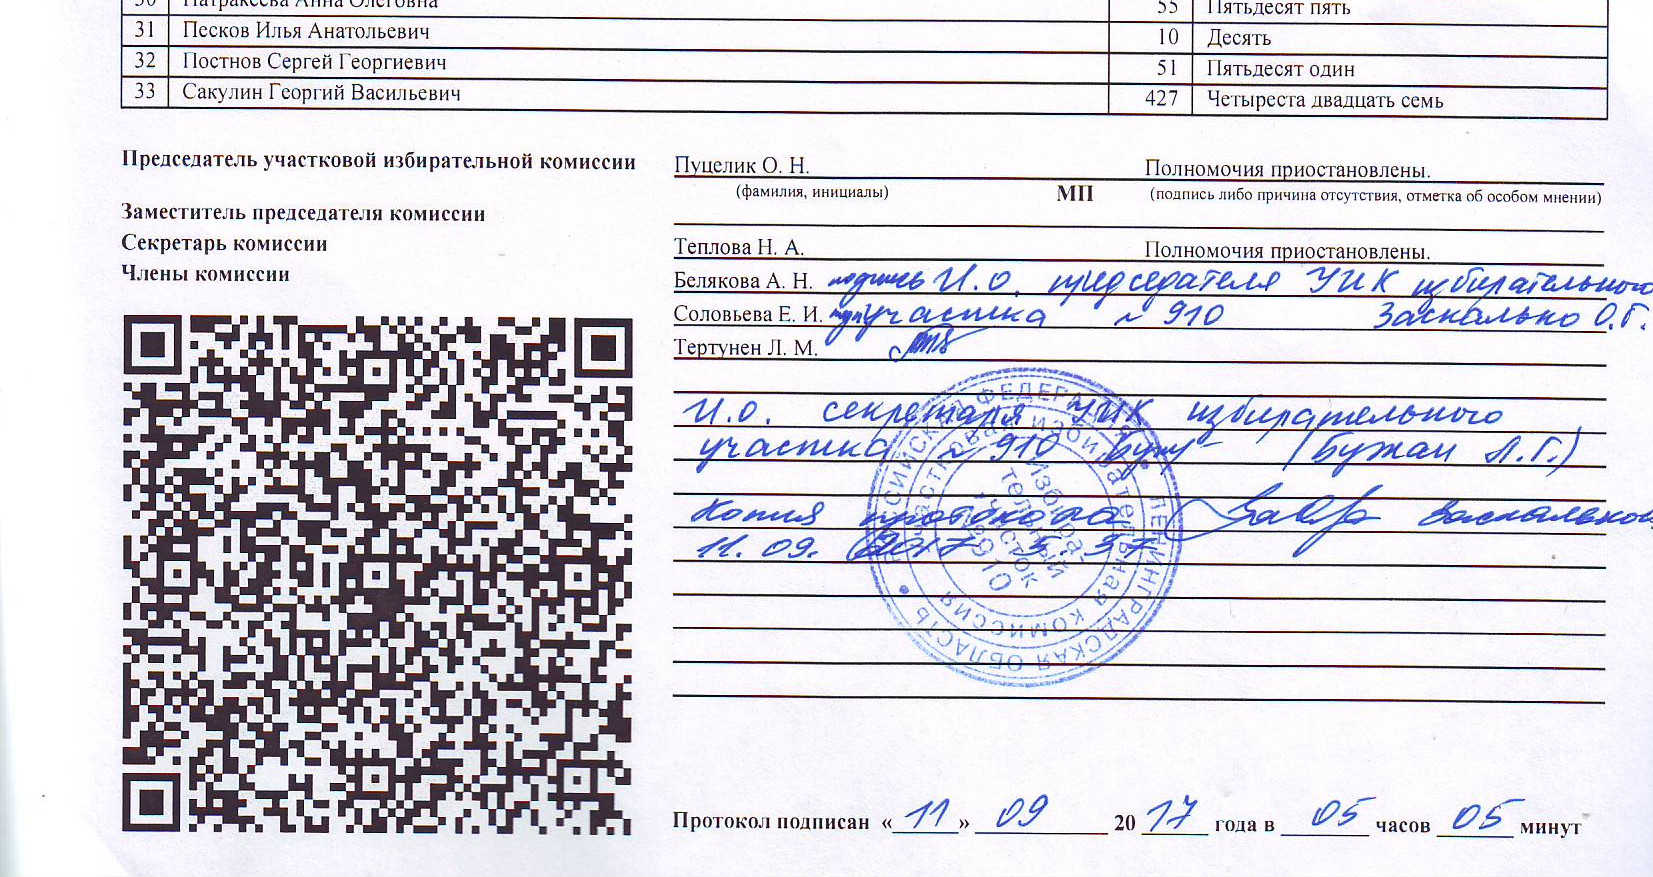 30 Патракеева Анна Олеговна 55 Пятьдесят пять
31 Песков Илья Анатольевич 10 Десять
32 Постнов Сергей Георгиевич 51 Пятьдесят один
33 Сакулин Георгий Васильевич 427 Четыреста двадцать семь
Председатель участковой избирательной комиссии Пуцелик О. Н. Полномочия приостановлены.
(фамилия, инициалы) МП (подпись либо причина отсутствия, отметка об особом мнении)
Заместитель председателя комиссии
Секретарь комиссии Теплова Н. А. Полномочия приостановлены.
Члены комиссии Белякова А. Н. подпись И.о. председателя УИК избирательного
Соловьева Е. И. участка № 910 Заскалько О.Г.
Тертунен Л. М.
И.о. секретаря УИК избирательного
участка № 910 (Бужан Л.Г.)
Копия протокола
11.09.2017
РОССИЙСКАЯ ФЕДЕРАЦИЯ • ЛЕНИНГРАДСКАЯ ОБЛАСТЬ •
участковая избирательная комиссия
Избира-
тельный
участок
№910
Протокол подписан «11» 09 20 17 года в 05 часов 05 минут